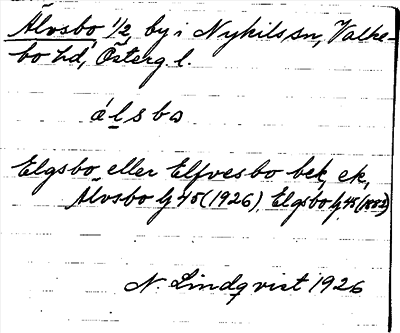 Älvsbo 1/2, by i Nykils sn, Valke-
bo hd, Österg. l.
álsbo
Elgsbo eller Elfvesbo bek, ek,
Älvsbo Gj 45 (1926), Elgsbo Gj 45 (1882)
N. Lindqvist 1926